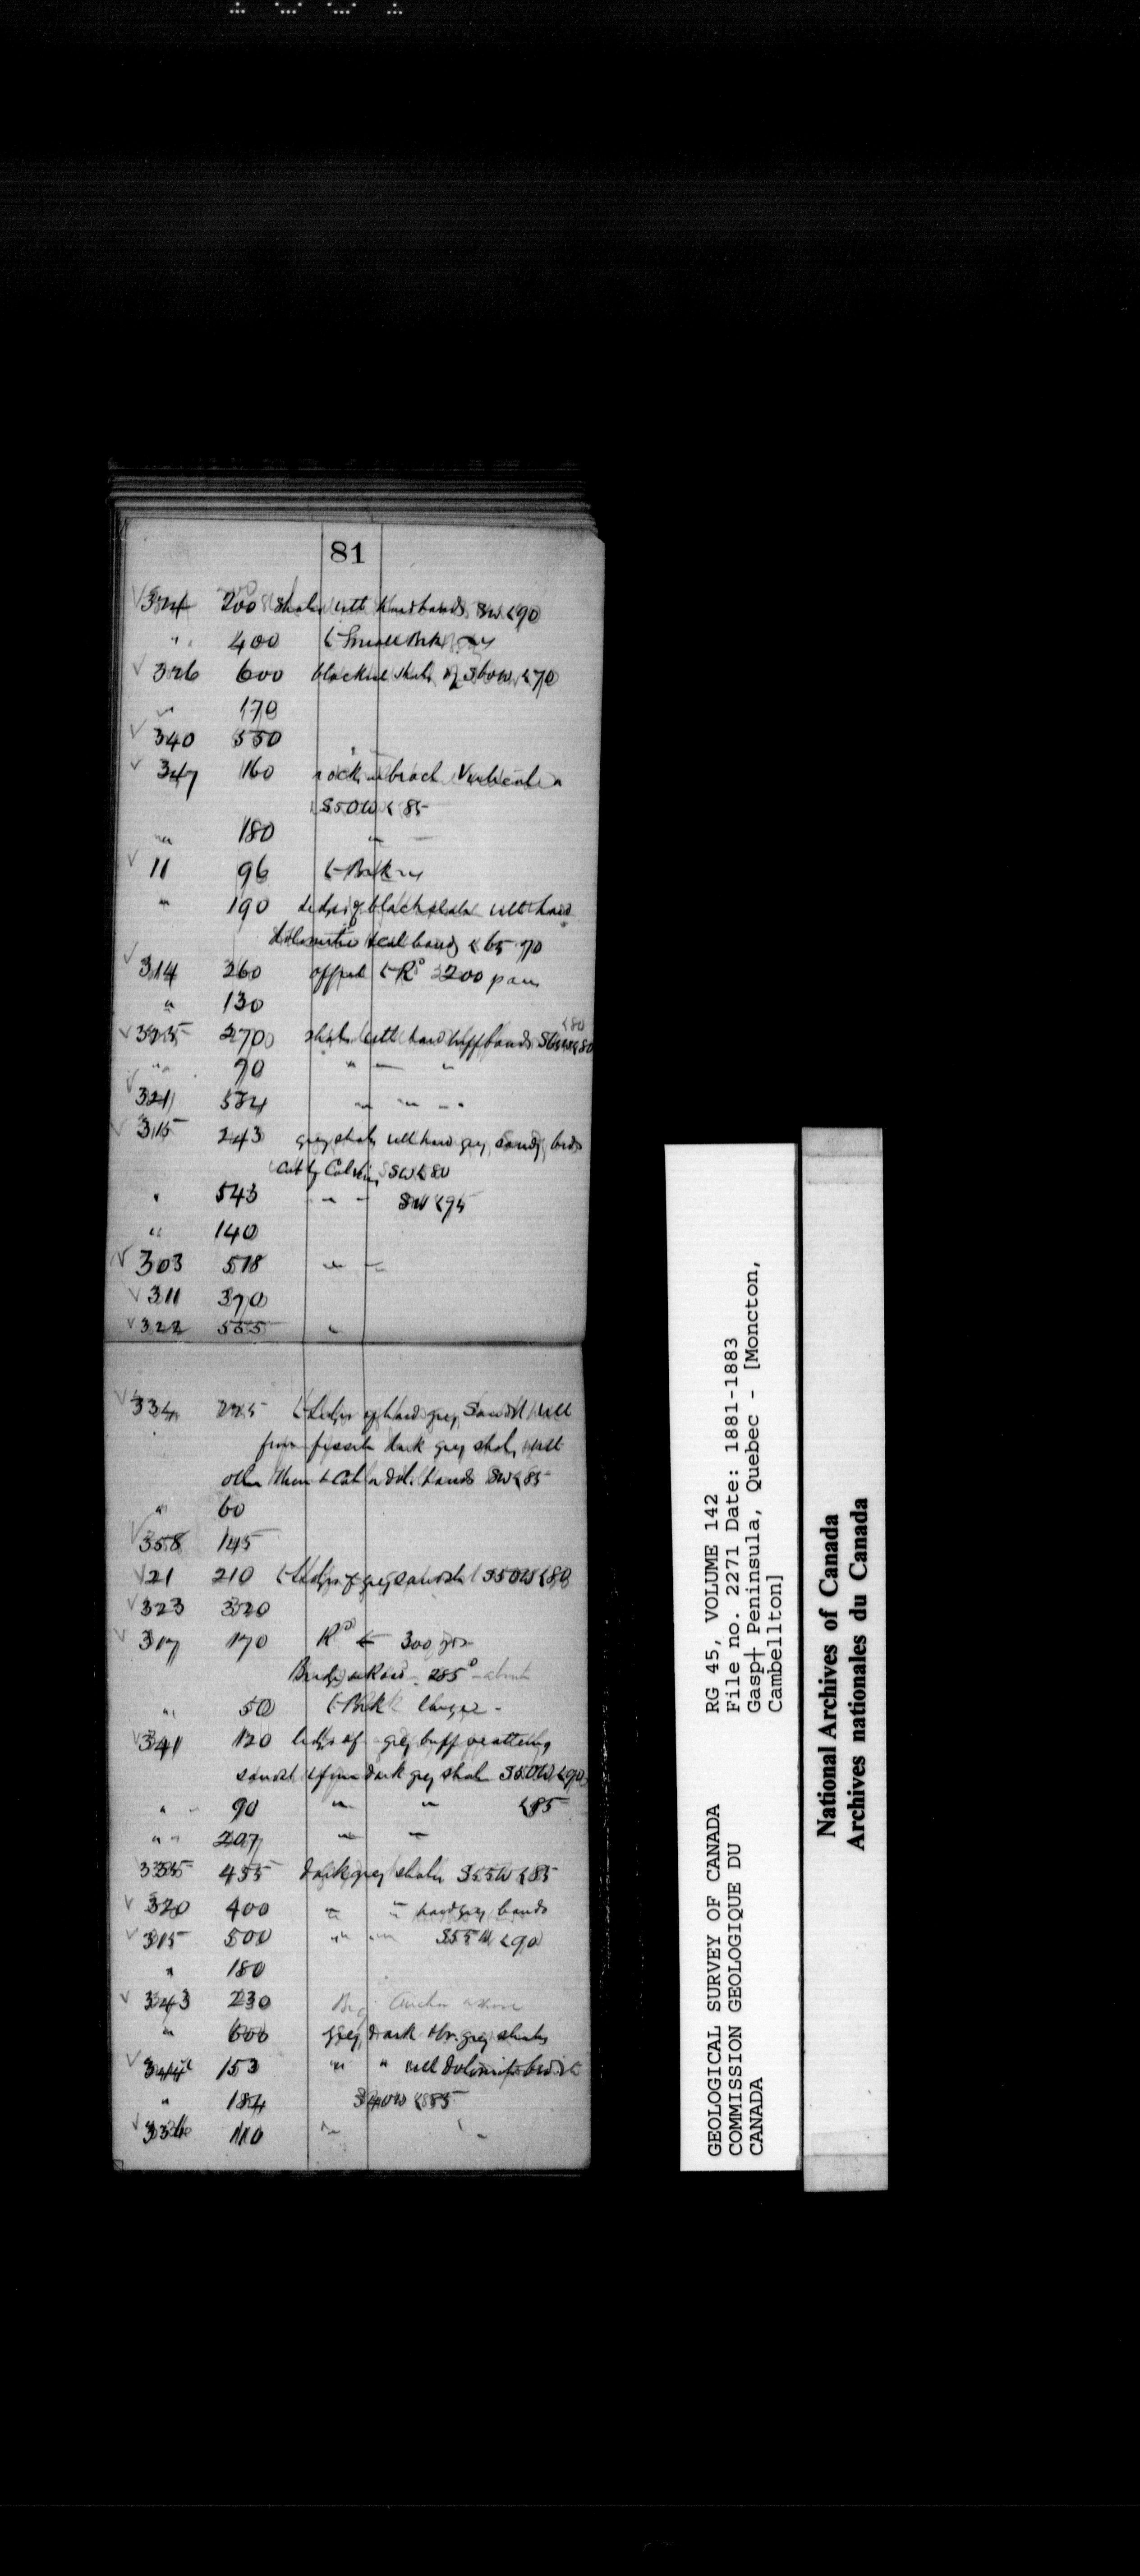 81
324 200 shales with hard bands SW <90
" 400 Small Brk
326 600 blackish shales S60W <70
" 170
340 550
347 160 rock in beach Vertical
S50W <85
" 180 "
11 96 Brk
" 190 ledges of black shale with hard
dolomitic bands <65-70
314 260 R° 200
" 130
325 270 shales with hard buff bands <80
" 90 " "
321 584 " " "
315 243 grey shales with hard grey sandy beds
cut by Calc veins SW <80
" 543 " " SW <95
" 140
303 518 " "
311 370
322 555 "
334 225 Ledges of hard grey Sandst with
fissile dark grey shales with
dol. bands SW <85
" 60
358 145
21 210 Ledges of grey sandst S50W <80
323 320
317 170 R° 300 yds
Bridge on Road 285° about
" 50 Brk large
341 120 ledges of grey buff weathering
sandst & fine dark grey shales S50W <90
" 90 " " <85
" " 207 " "
335 455 dark grey shales S55W <85
320 400 " " hard grey bands
315 500 " " S55W <90
" 180
343 230
" 600 grey, dark & br. grey shales
344 153 " " with dolomitic beds
" 184 S40W <85
336 110 " "
GEOLOGICAL SURVEY OF CANADA
COMMISSION GEOLOGIQUE DU
CANADA
RG 45, VOLUME 142
File no. 2271 Date: 1881-1883
Gasp† Peninsula, Quebec - [Moncton,
Cambellton]
National Archives of Canada
Archives nationales du Canada